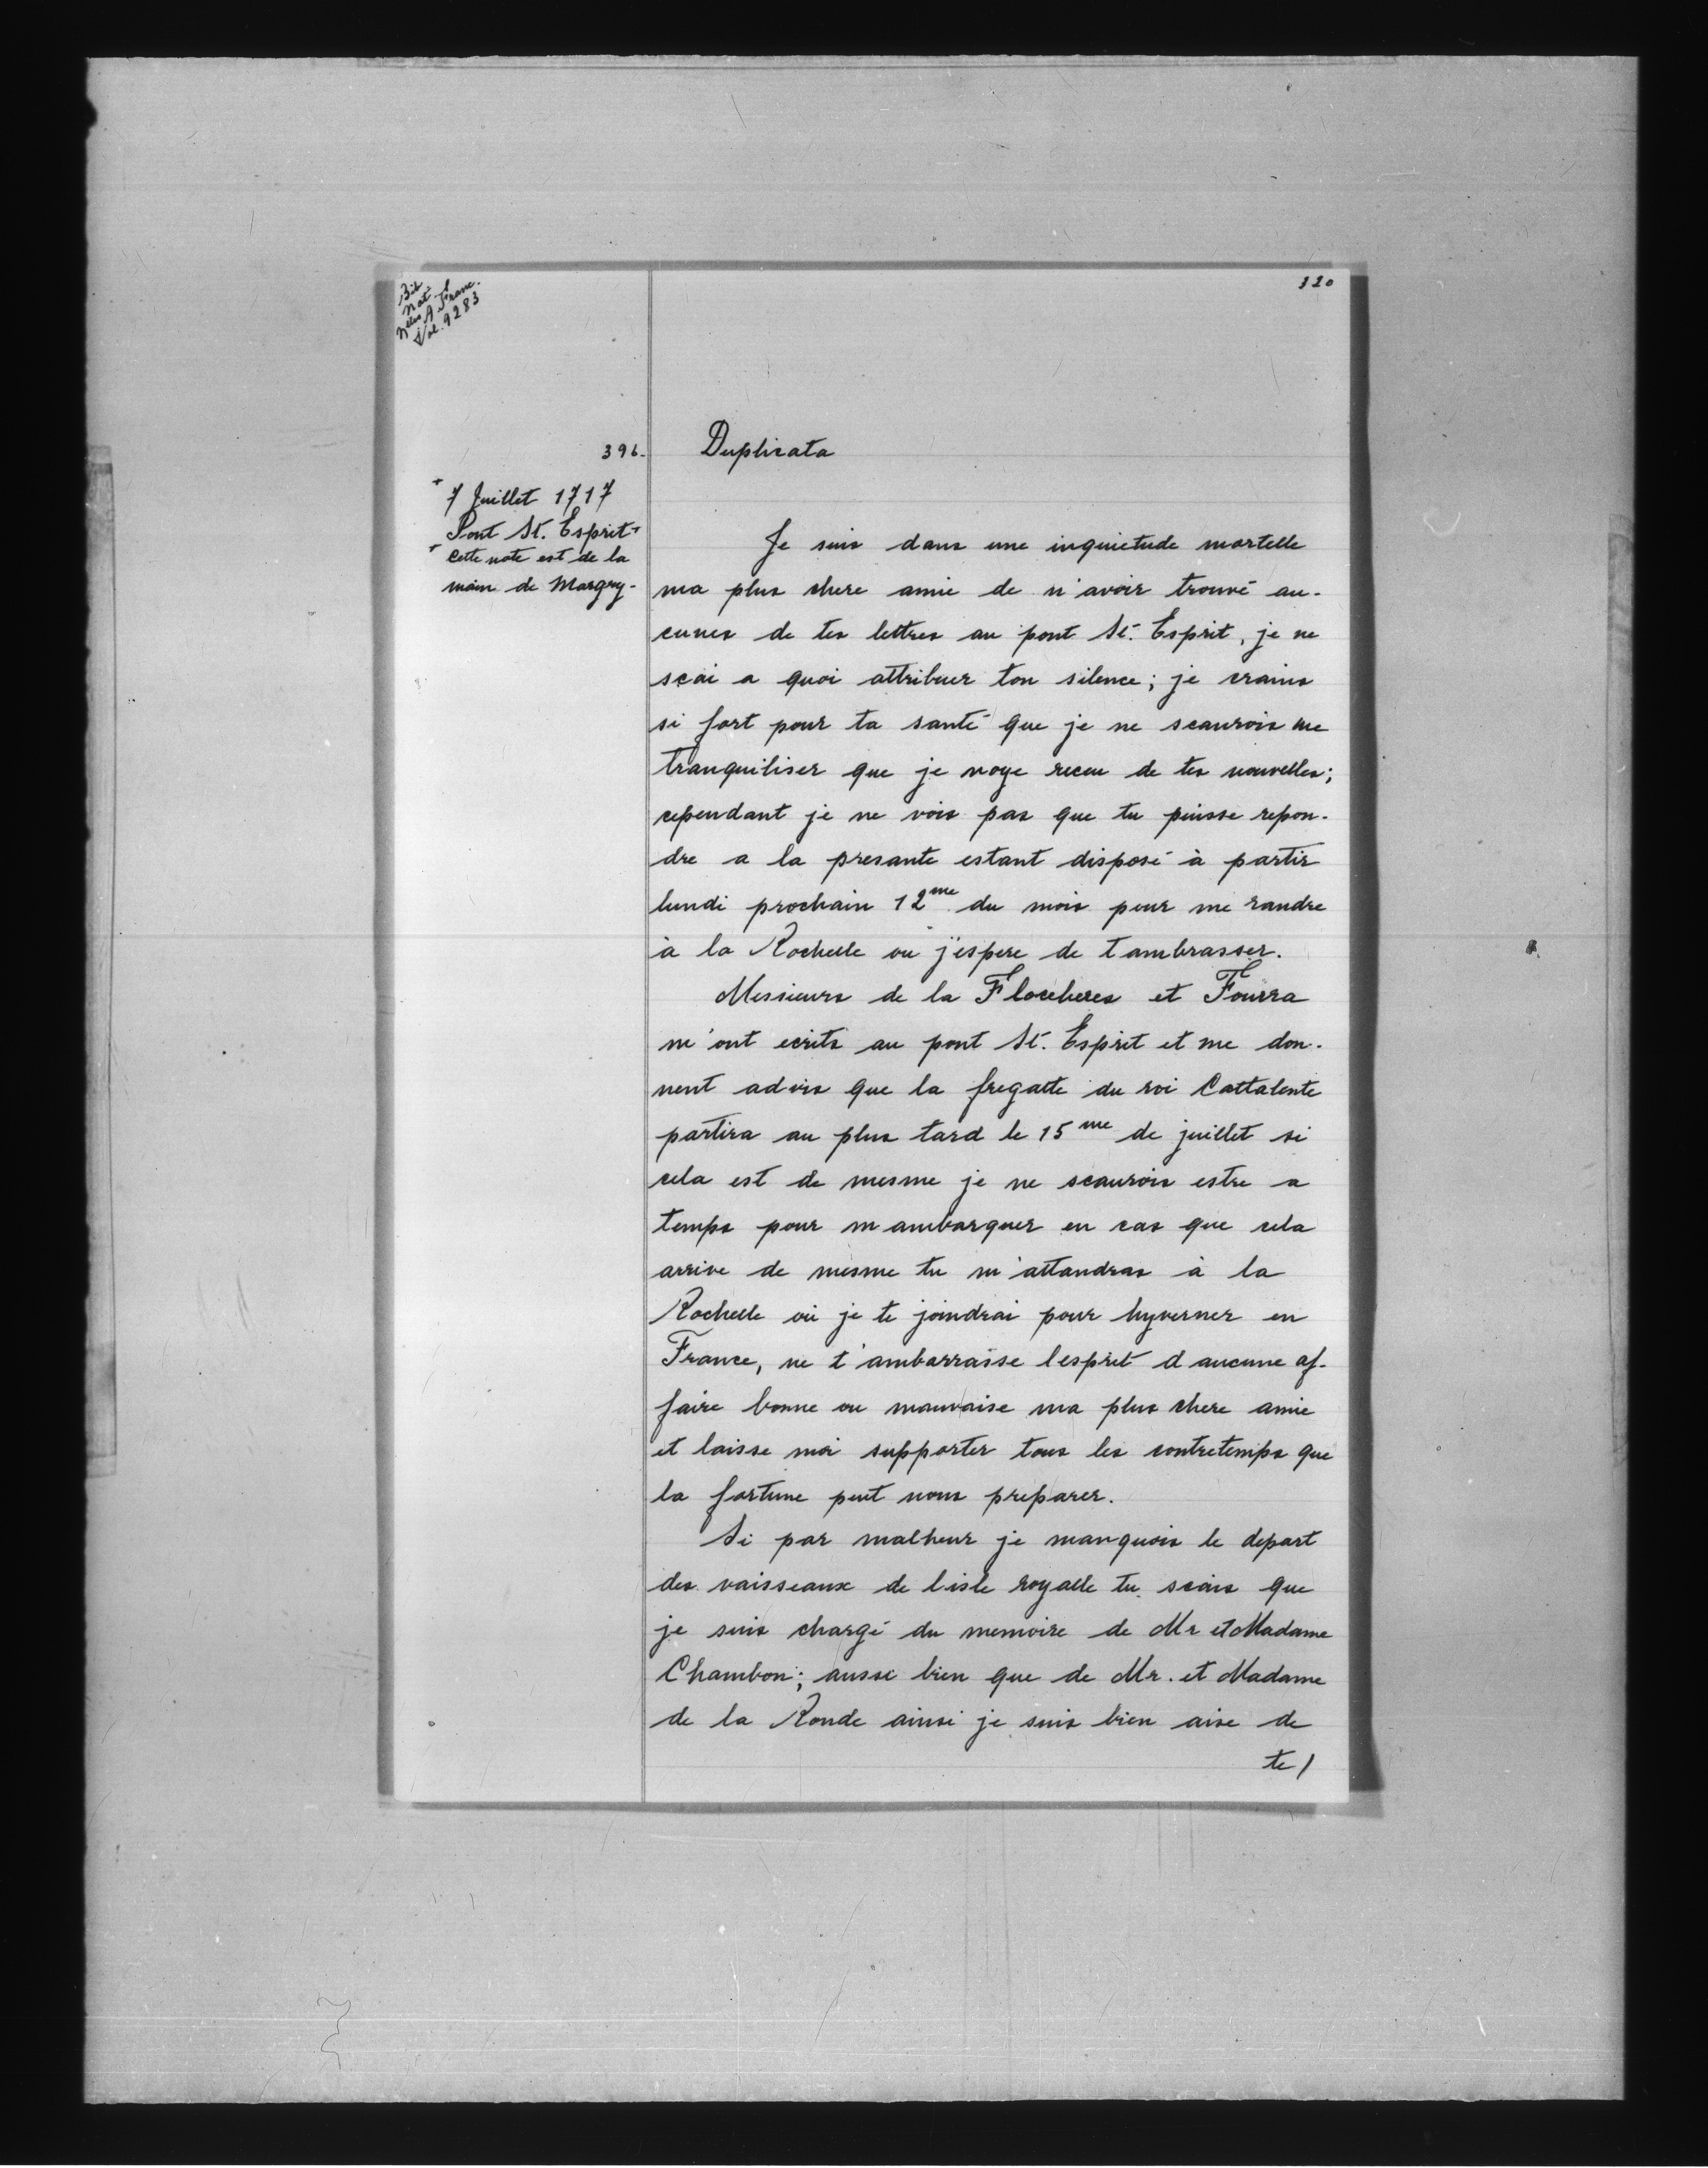 Bib.
Nat.
Nelles A. Franc.
Vol. 9283
120
396.
Duplicata
+ 7 Juillet 1717
Pont St. Esprit +
+ Cette note est de la
main de Margry.
Je suis dans une inquietude mortelle
ma plus chere amie de n'avoir trouvé au-
cunes de tes lettres au pont St. Esprit, je ne
scai a quoi attribuer ton silence; je crains
si fort pour ta santé que je ne scaurois me
tranquiliser que je noye receu de tes nouvelles;
cependant je ne vois pas que tu puisse repon-
dre a la presante estant disposé à partir
lundi prochain 12me du mois pour me randre
à la Rochelle ou j'espere de t ambrasser.
Messieurs de la Flocheres et Fourra
m'ont ecrits au pont St. Esprit et me don-
nent advis que la fregatte du roi Cattalente
partira au plus tard le 15me de juillet si
cela est de mesme je ne scaurois estre a
temps pour m ambarquer en cas que cela
arrive de mesme tu m'attandras à la
Rochelle où je te joindrai pour hyverner en
France, ne t'ambarraisse lesprit d aucune af-
faire bonne ou mauvaise ma plus chere amie
et laisse moi supporter tous les contretemps que
la fortune peut nous preparer.
Si par malheur je manquois le depart
des vaisseaux de l isle royalle tu scais que
je suis chargé du memoire de Mr et Madame
Chambon; aussi bien que de Mr. et Madame
de la Ronde ainsi je suis bien aise de
te /